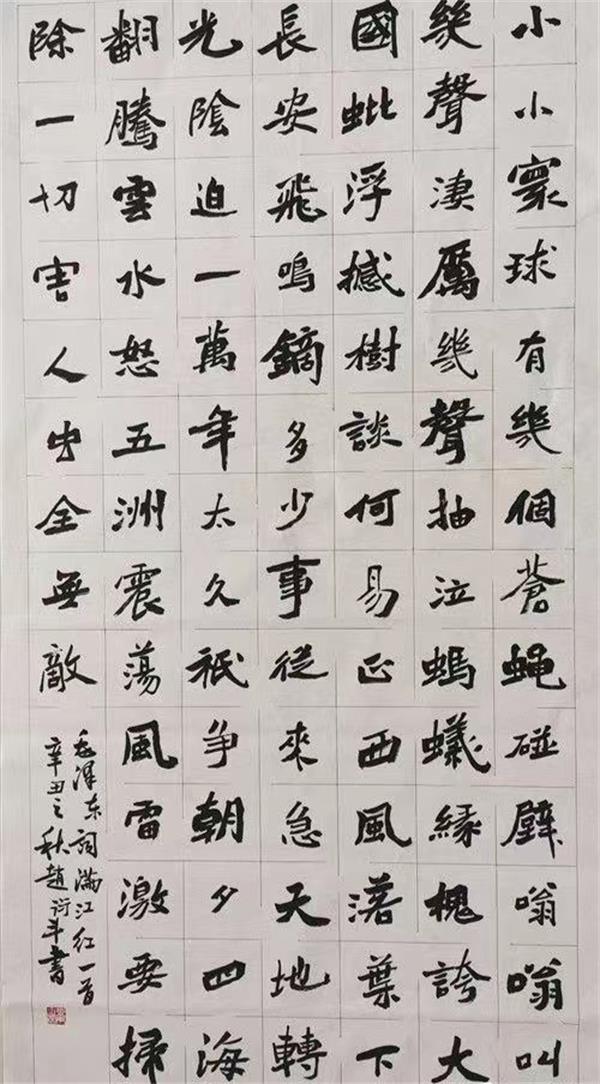 小小寰球有幾個蒼蠅碰壁嗡嗡叫
幾聲淒厲幾聲抽泣螞蟻緣槐誇大
國蚍浮撼樹談何易正西風落葉下
長安飛鳴鏑多少事從來急天地轉
光陰迫一萬年太久祇爭朝夕四海
翻騰雲水怒五洲震蕩風雷激要掃
除一切害人虫全無敵
毛泽东词满江红一首
辛丑之秋趙斗書